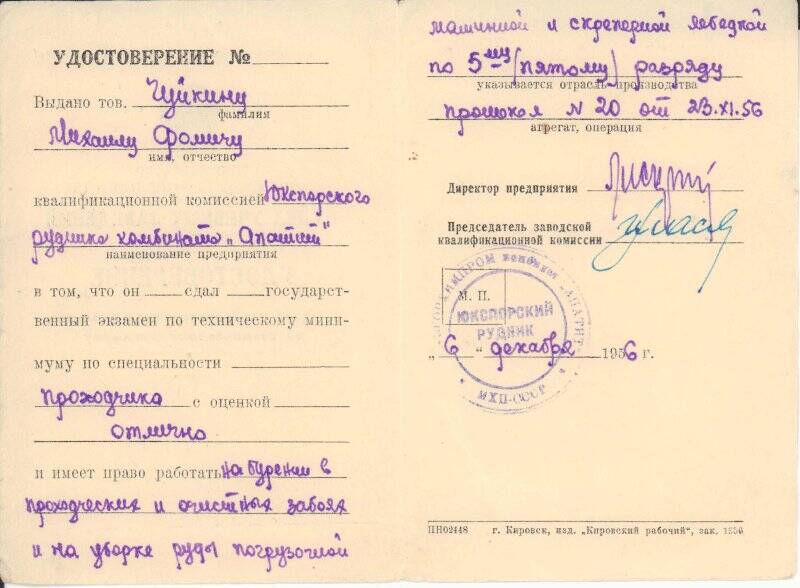 УДОСТОВЕРЕНИЕ №
Выдано тов. Чуйкину
фамилия
Михаилу Фомичу
имя, отчество
квалификационной комиссией Юкспорского
рудника комбината „Апатит"
наименование предприятия
в том, что он сдал государст-
венный экзамен по техническому мини-
муму по специальности
проходчика с оценкой
отлично
и имеет право работать на бурении в
проходческих и очистных забоях
и на уборке руды погрузочной
машинной и скреперной лебедкой
по 5му (пятому) разряду
указывается отрасль производства
протокол N 20 от 23.XI.56
агрегат, операция
Директор предприятия
Председатель заводской
квалификационной комиссии
М. П.
комбинат „АПАТИТ"
ЮКСПОРСКИЙ
РУДНИК
МХП-СССР
„6" декабря 1956 г.
ПН02448 г. Кировск, изд. „Кировский рабочий", зак. 1356